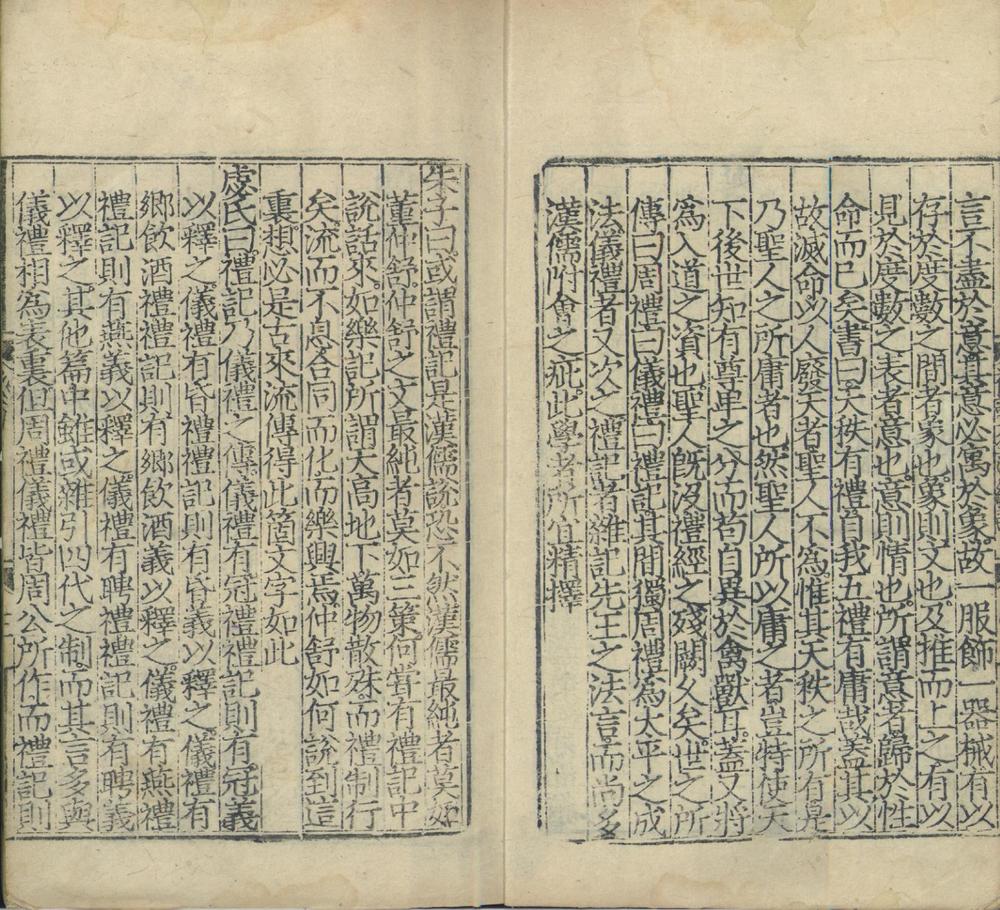 言不盡於意其意必寓於象故一服飾一器械有以
存於度數之間者象也象則文也及推而上之有以
見於度數之表者意也意則情也所謂意者歸於性
命而已矣書曰天秩有禮自我五禮有庸哉蓋其以
故滅命以人廢天者聖人不為惟其天秩之所有是
乃聖人之所庸者也然聖人所以庸之者豈特使天
下後世知有尊卑之分而苟自異於禽獸耳蓋又將
為入道之資也聖人既沒禮經之殘闕久矣世之所
傳曰周禮曰儀禮曰禮記其間獨周禮為太平之成
法儀禮者又次之禮記者雜記先王之法言而尚多
漢儒附會之疵此學者所宜精擇
朱子曰或謂禮記是漢儒說恐不然漢儒最純者莫如
董仲舒仲舒之文最純者莫如三策何嘗有禮記中
說話來如樂記所謂天高地下萬物散殊而禮制行
矣流而不息合同而化而樂興焉仲舒如何說到這
裏想必是古來流傳得此箇文字如此
虙氏曰禮記乃儀禮之傳儀禮有冠禮禮記則有冠義
以釋之儀禮有昏禮禮記則有昏義以釋之儀禮有
鄉飲酒禮禮記則有鄉飲酒義以釋之儀禮有燕禮
禮記則有燕義以釋之儀禮有聘禮禮記則有聘義
以釋之其他篇中雖或雜引四代之制而其言多與
儀禮相為表裏但周禮儀禮皆周公所作而禮記則